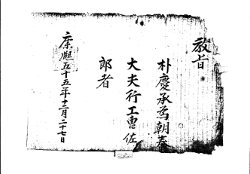 教旨
朴慶承為朝奉
大夫行工曹佐
郎者
康熙五十五年十二月二十七日